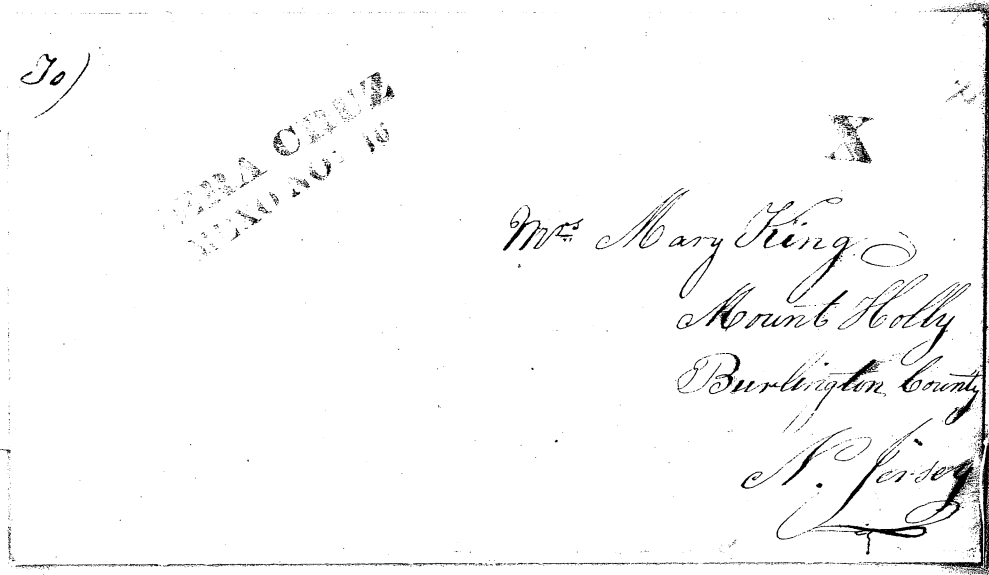 To)
VERA CRUZ
MEXO NOV 16
X
Mrs Mary King
Mount Holly
Burlington County
N. Jersey